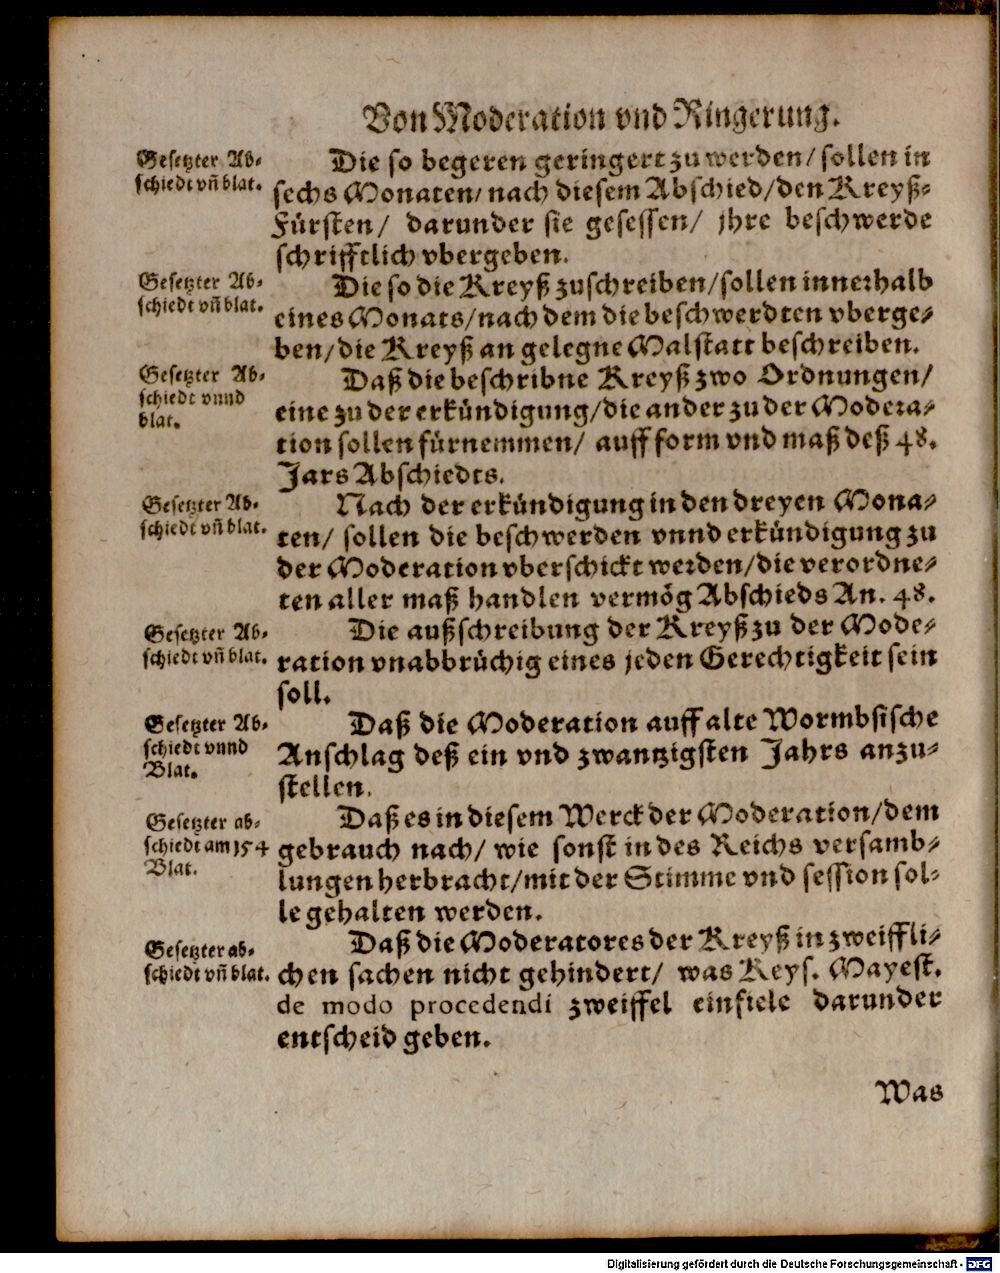 Von Moderation vnd Ringerung.
Gesetzter Ab-
schiedt vñ blat.
Die so begeren geringert zu werden/ sollen in
sechs Monaten/ nach diesem Abschied/ den Kreyß-
Fürsten/ darunder sie gesessen/ jhre beschwerde
schrifftlich vbergeben.
Gesetzter Ab-
schiedt vñ blat.
Die so die Kreyß zuschreiben/ sollen innerhalb
eines Monats/ nach dem die beschwerdten vberge-
ben/ die Kreyß an gelegne Malstatt beschreiben.
Gesetzter Ab-
schiedt vnnd
blat.
Daß die beschribne Kreyß zwo Ordnungen/
eine zu der erkündigung/ die ander zu der Modera-
tion sollen fürnemmen/ auff form vnd maß deß 48.
Jars Abschiedts.
Gesetzter Ab-
schiedt vñ blat.
Nach der erkündigung in den dreyen Mona-
ten/ sollen die beschwerden vnnd erkündigung zu
der Moderation vberschickt werden/ die verordne-
ten aller maß handlen vermög Abschieds An. 48.
Gesetzter Ab-
schiedt vñ blat.
Die außschreibung der Kreyß zu der Mode-
ration vnabbrüchig eines jeden Gerechtigkeit sein
soll.
Gesetzter Ab-
schiedt vnnd
Blat.
Daß die Moderation auff alte Wormbsische
Anschlag deß ein vnd zwantzigsten Jahrs anzu-
stellen.
Gesetzter ab-
schiedt am 154
Blat.
Daß es in diesem Werck der Moderation/ dem
gebrauch nach/ wie sonst in des Reichs versamb-
lungen herbracht/ mit der Stimme vnd session sol-
le gehalten werden.
Gesetzter ab-
schiedt vñ blat.
Daß die Moderatores der Kreyß in zweiffli-
chen sachen nicht gehindert/ was Keys. Mayest.
de modo procedendi zweiffel einfiele darunder
entscheid geben.
Was
Digitalisierung gefördert durch die Deutsche Forschungsgemeinschaft - DFG